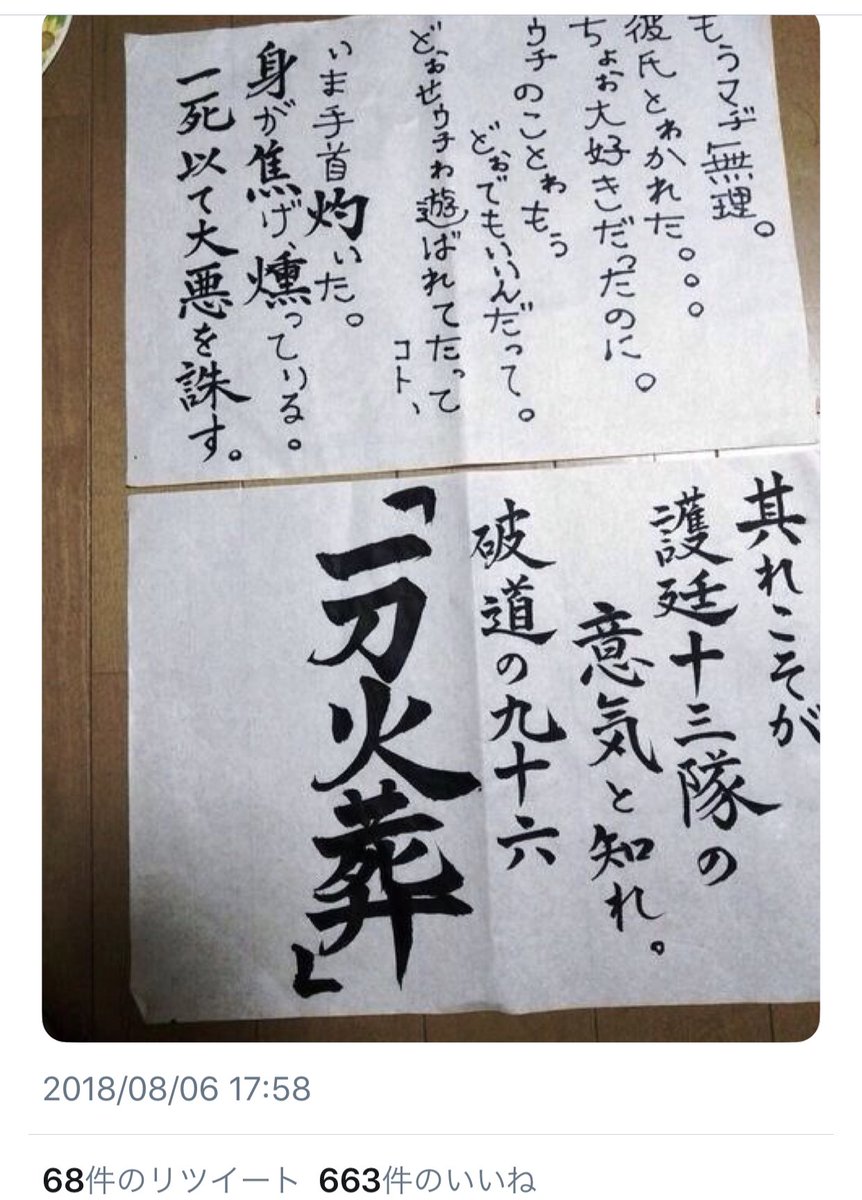 もうマヂ無理。
彼氏とゎかれた。。。
ちょぉ大好きだったのに。
ウチのことゎもぅ
どぉでもいいんだって。
どぉせウチゎ遊ばれてたって
コト、
いま手首灼いた。
身が焦げ、燻っている。
一死以て大悪を誅す。
其れこそが
護廷十三隊の
意気と知れ。
破道の九十六
「一刀火葬」
2018/08/06 17:58
68件のリツイート 663件のいいね